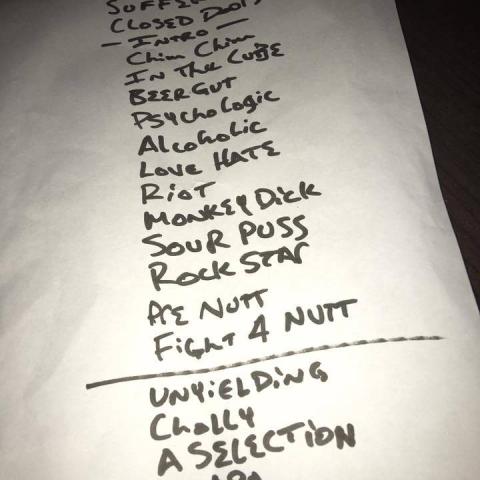 CLOSED
— INTRO —
Chim Chim
IN THE CUBE
BEER GUT
PSYCHOLOGIC
Alcoholic
LOVE HATE
RIOT
MONKEY DICK
SOUR PUSS
ROCK STAR
NUTT
FIGHT 4 NUTT
UNYIELDING
Chally
A SELECTION